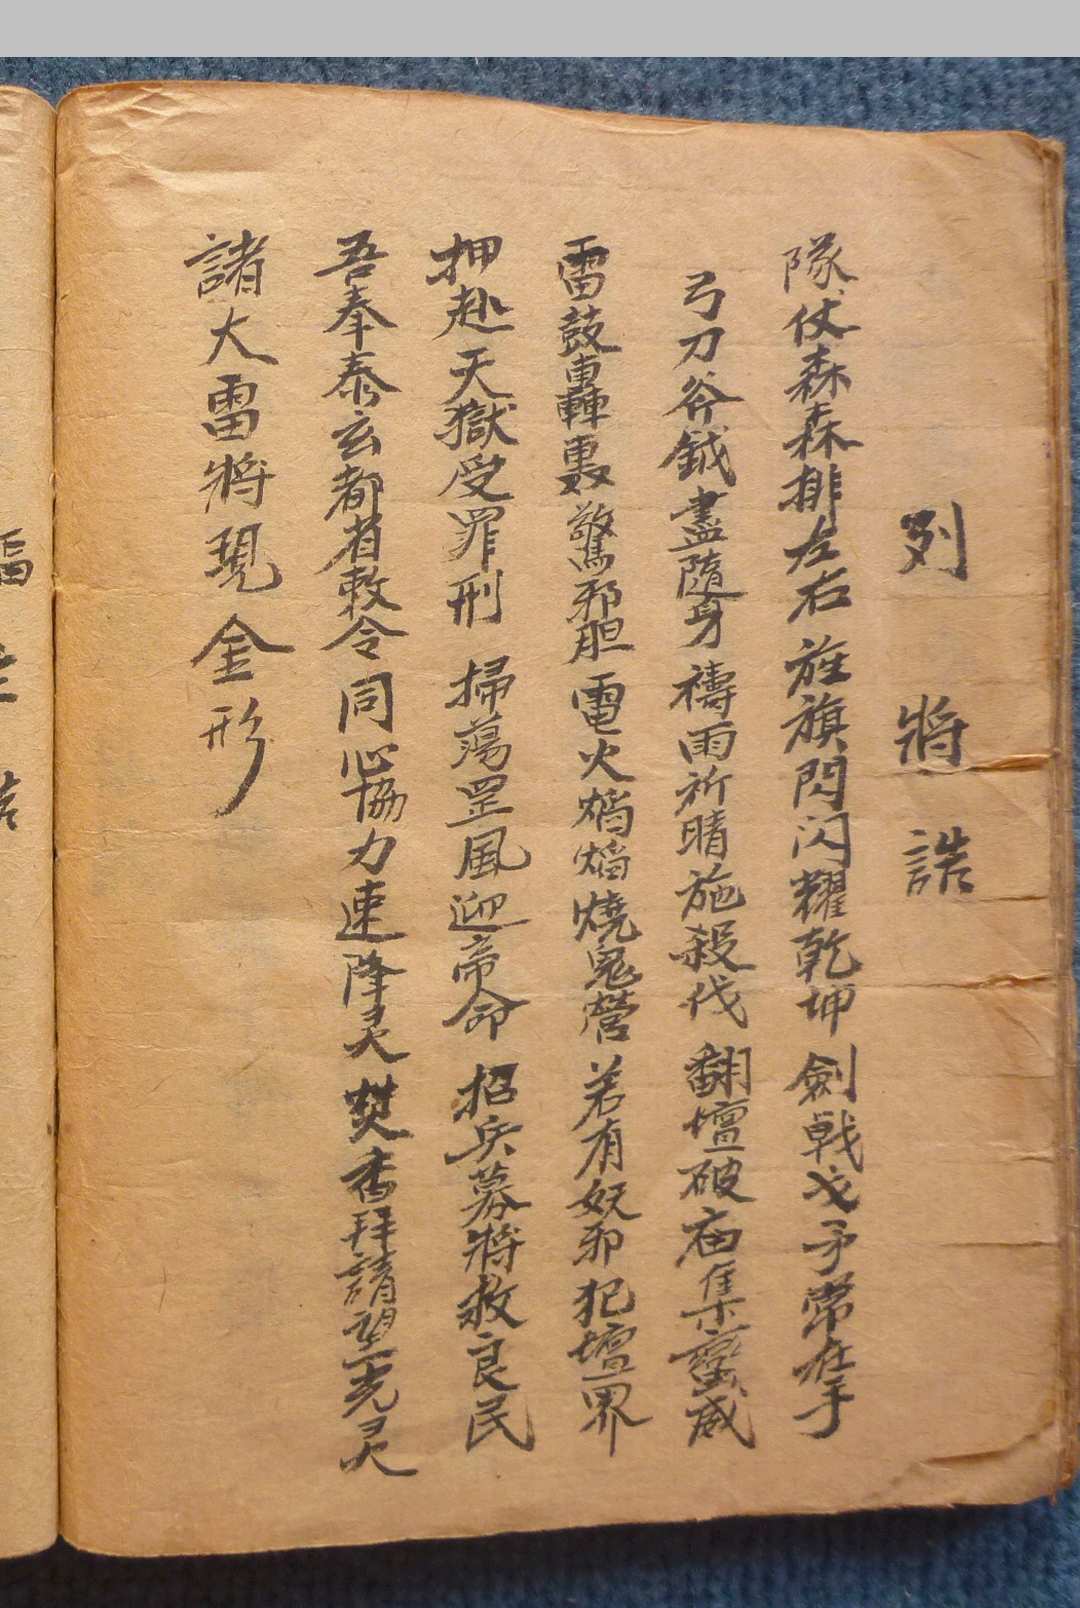 列將誥
隊仗森森排左右 旌旗閃閃耀乾坤 劍戟戈矛常在手
弓刀斧鉞盡隨身 禱雨祈晴施殺伐 翻壇破庙集蛮威
雷鼓轟轟驚邪胆 電火焰焰燒鬼營 若有妖邪犯壇界
押赴天獄受罪刑 掃蕩罡風迎帝命 招兵募將救良民
吾奉泰玄都省敕令 同心協力速降灵 焚香拜請望光灵
諸大雷將現金形